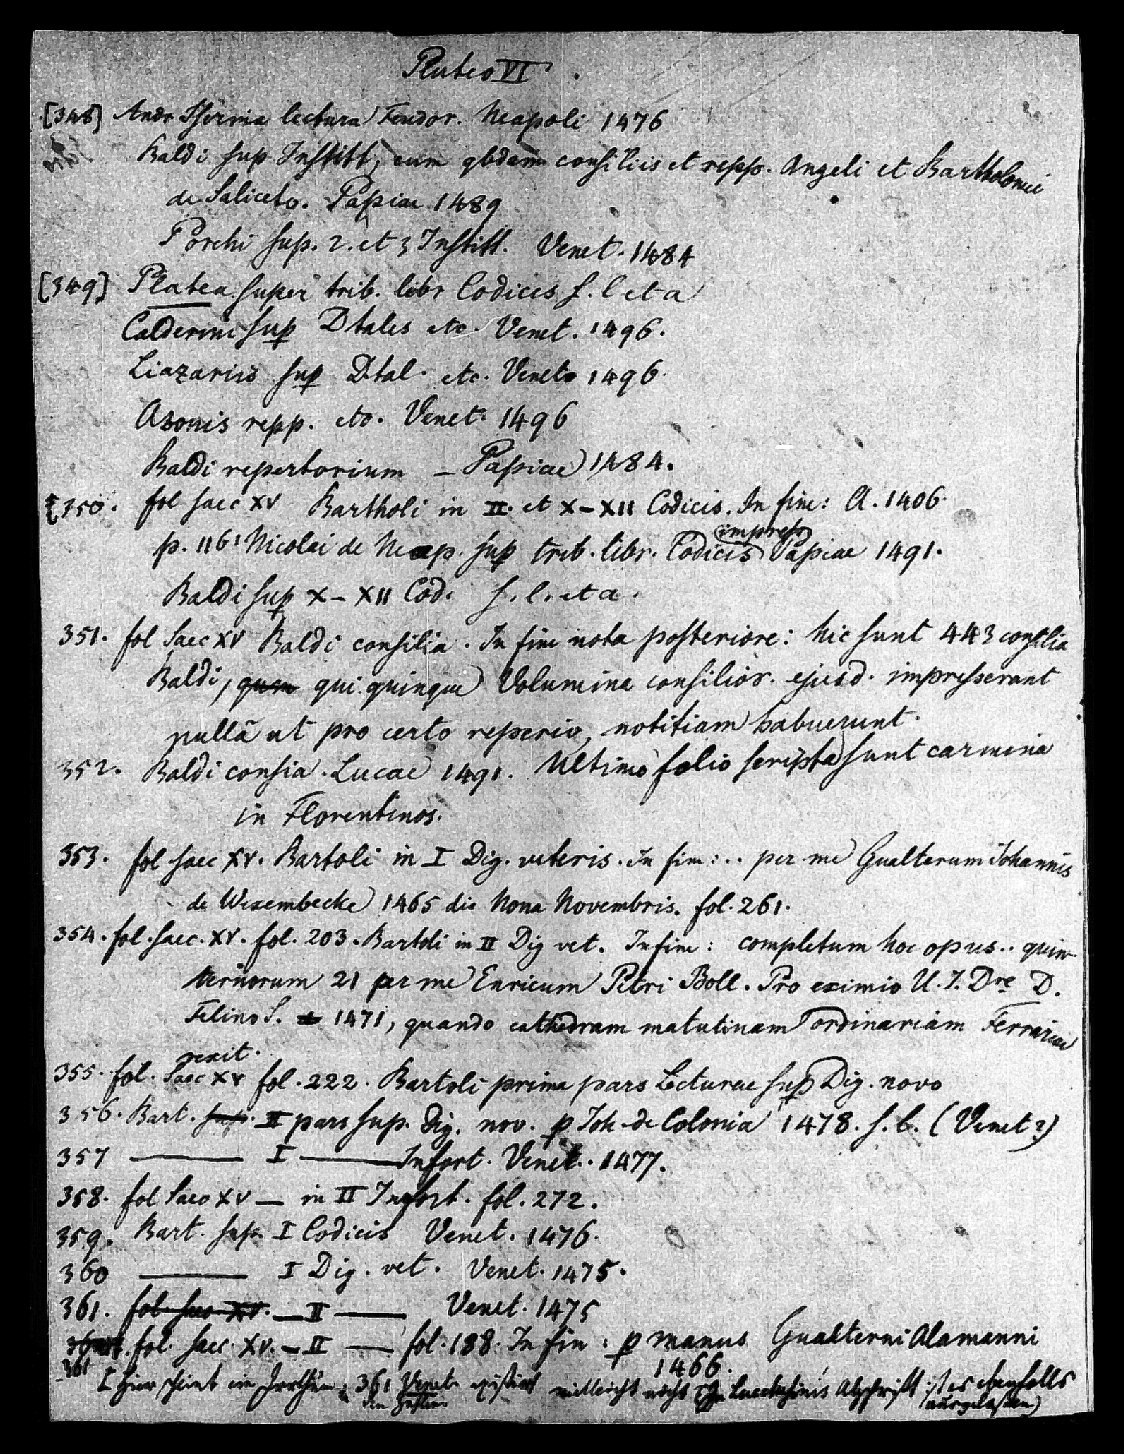 Pluteo VI.
[348] Andr. Isernia lectura Feudor. Neapoli 1476
Baldi sup Institt, cum qbdam consiliis et repp. Angeli et Bartholomei
de Saliceto. Papiae 1489
Porchi sup. 2. et 3 Institt. Venet. 1484
[349] Platea super trib. libr Codicis s. l et a
Calderini sup Dtales etc. Venet. 1496.
Liazariis sup D.tal. etc. Veneto 1496.
Azonis repp. etc. Venet. 1496
Baldi repertorium – Papiae 1484.
[350. fol saec XV Bartholi in II. et X–XII Codicis. In fine: A. 1406.
impress
p. 116' Nicolai de Neap. sup trib. libr. Codicis Papiae 1491.
Baldi sup X–XII Cod. s. l. et a.
351. fol Saec XV Baldi consilia. In fine nota posteriore: hic sunt 443 consilia
Baldi, quem qui quinque Volumina consilior. ejusd. impresserunt
nullã ut pro certo reperio, notitiam habuerunt.
352. Baldi consia. Lucae 1491. Ultimo folio scripta sunt carmina
in Florentinos.
353. fol saec XV. Bartoli in I Dig. veteris. In fine: .. per me Gualterum Johannis
de Wesembecke 1465 die Nona Novembris. fol. 261.
354. fol. saec. XV. fol. 203. Bartoli in II Dig vet. In fine: completum hoc opus .. quin-
ternorum 21 per me Enricum Petri Boll. Pro eximio U. J. Dre D.
Felino S. 1471, quando cathedram matutinam ordinariam Ferrariae
rexit.
355. fol. Saec XV fol. 222. Bartoli prima pars Lecturae sup Dig. novo
356. Bart. sup. II pars sup. Dig. nov. p Joh. de Colonia 1478. s. l. (Venet?)
357 ——— I ——— Infort. Venet. 1477.
358. fol Saec XV — in II Infort. fol. 272.
359. Bart. sup. I Codicis Venet. 1476.
360 ——— I Dig. vet. Venet. 1475.
361. fol saec XV. — II —— Venet. 1475
fol. saec. XV. – II — fol. 188. In fin: p manus Gualterni Alamanni
1466.
361 hier scheint ein Irrthum, 361 Venet. existirt vielleicht nicht Abschrift ist es ebenfalls
ausgelassen)